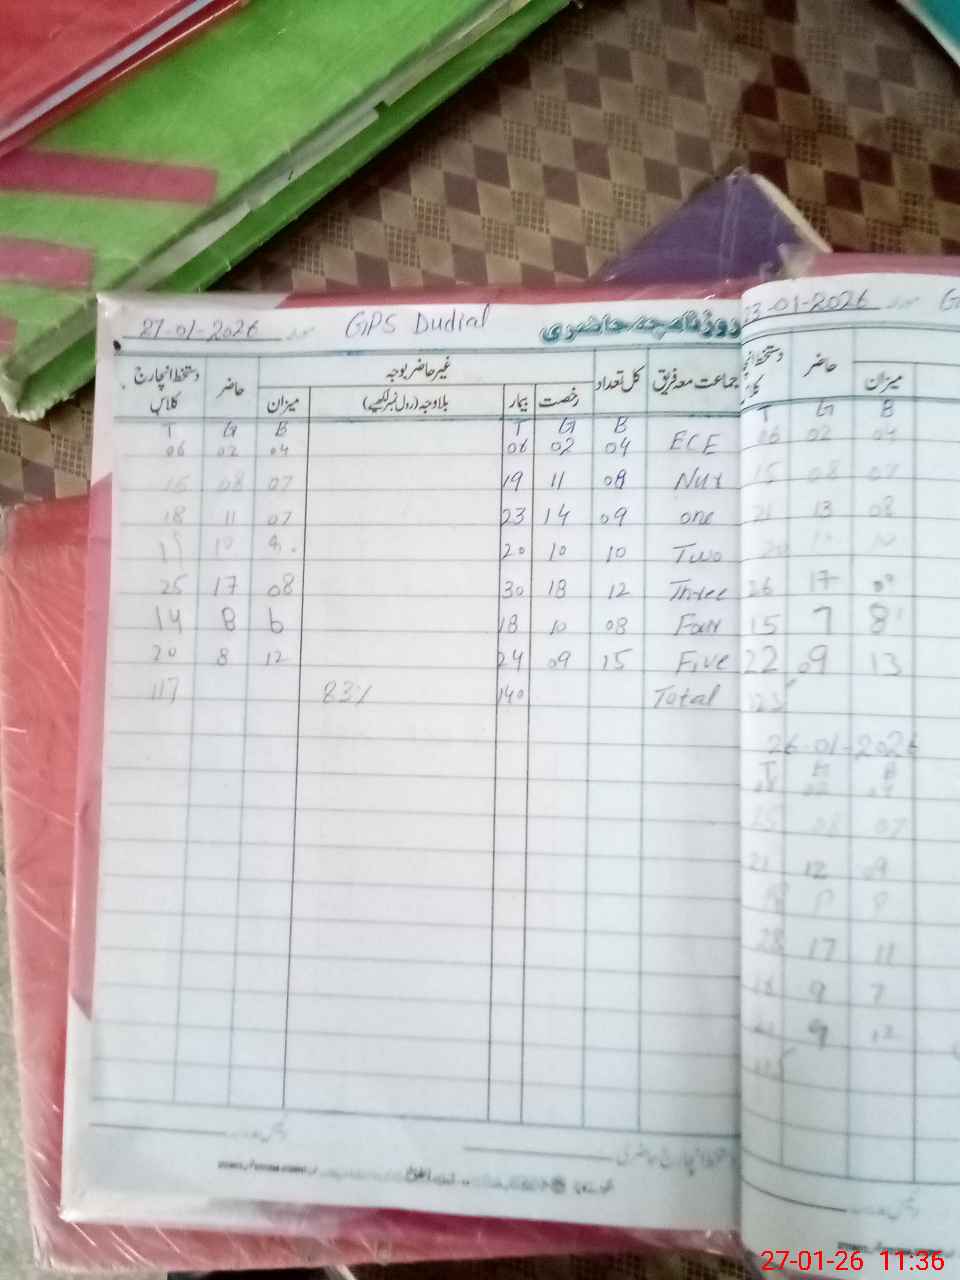 27-01-2026 GPS Dudial روزنامچہ حاضری
جماعت معہ فریق کل تعداد غیر حاضر بوجہ حاضر دستخط انچارج کلاس
رخصت بیمار بلاوجہ (رول نمبر لکھیے) میزان
T G B T G B
06 02 04 06 02 04 ECE
15 08 07 19 11 08 Nur
18 11 07 23 14 09 one
10 20 10 10 Two
25 17 08 30 18 12 Three
14 8 6 18 10 08 Four
20 8 12 24 09 15 Five
117 83% 140 Total
23-01-2026 G
دستخط انچارج حاضر میزان
T G B
06 02 04
15 08 07
21 13 08
20
26 17 09
15 7 8
22 09 13
125
26-01-2026
T G B
02
15 08 07
21 12 09
28 17 11
9 7
9
27-01-26 11:36